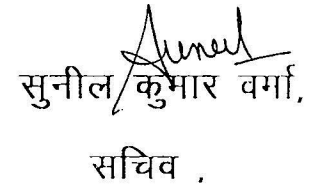 Suneel
सुनील कुमार वर्मा,
सचिव ,